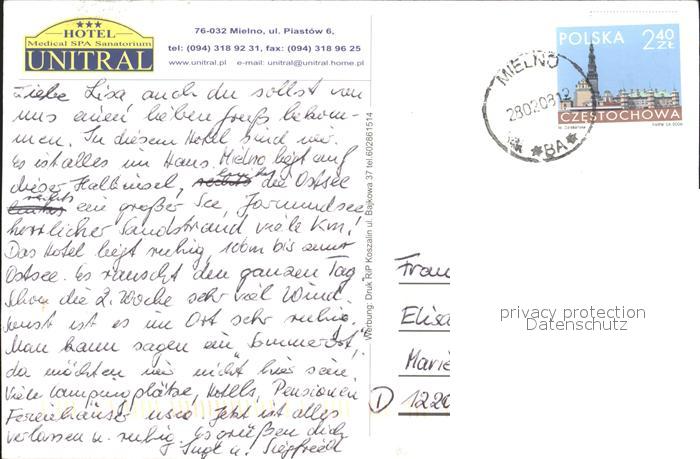 ★★★
HOTEL
Medical SPA Sanatorium
UNITRAL
76-032 Mielno, ul. Piastów 6,
tel: (094) 318 92 31, fax: (094) 318 96 25
www.unitral.pl e-mail: unitral@unitral.home.pl
Liebe Lisa auch du sollst von
uns einen lieben Gruß bekom-
men. In diesem Hotel sind wir.
Es ist alles im Haus. Mielno liegt auf
dieser Halbinsel, links die Ostsee
rechts ein großer See, Jamundsee,
herrlicher Sandstrand viele Km!
Das Hotel liegt ruhig, 100m bis zur
Ostsee. Es rauscht den ganzen Tag
schon die 2. Woche sehr viel Wind.
Sonst ist es im Ort sehr ruhig.
Man kann sagen ein "Sommerort",
da möchten wir nicht hier sein
viele Campingplätze, Hotells, Pensionen
Ferienhäuser usw. Jetzt ist alles
verlassen u. ruhig. Es grüßen dich
Inge u. Siegfried
Werbung: Druk RiP Koszalin ul. Bajkowa 37 tel.602861514
POLSKA 2,40 ZŁ
CZĘSTOCHOWA
MIELNO
28020812
*BA*
Frau
Elisa
Marie
1220
privacy protection
Datenschutz